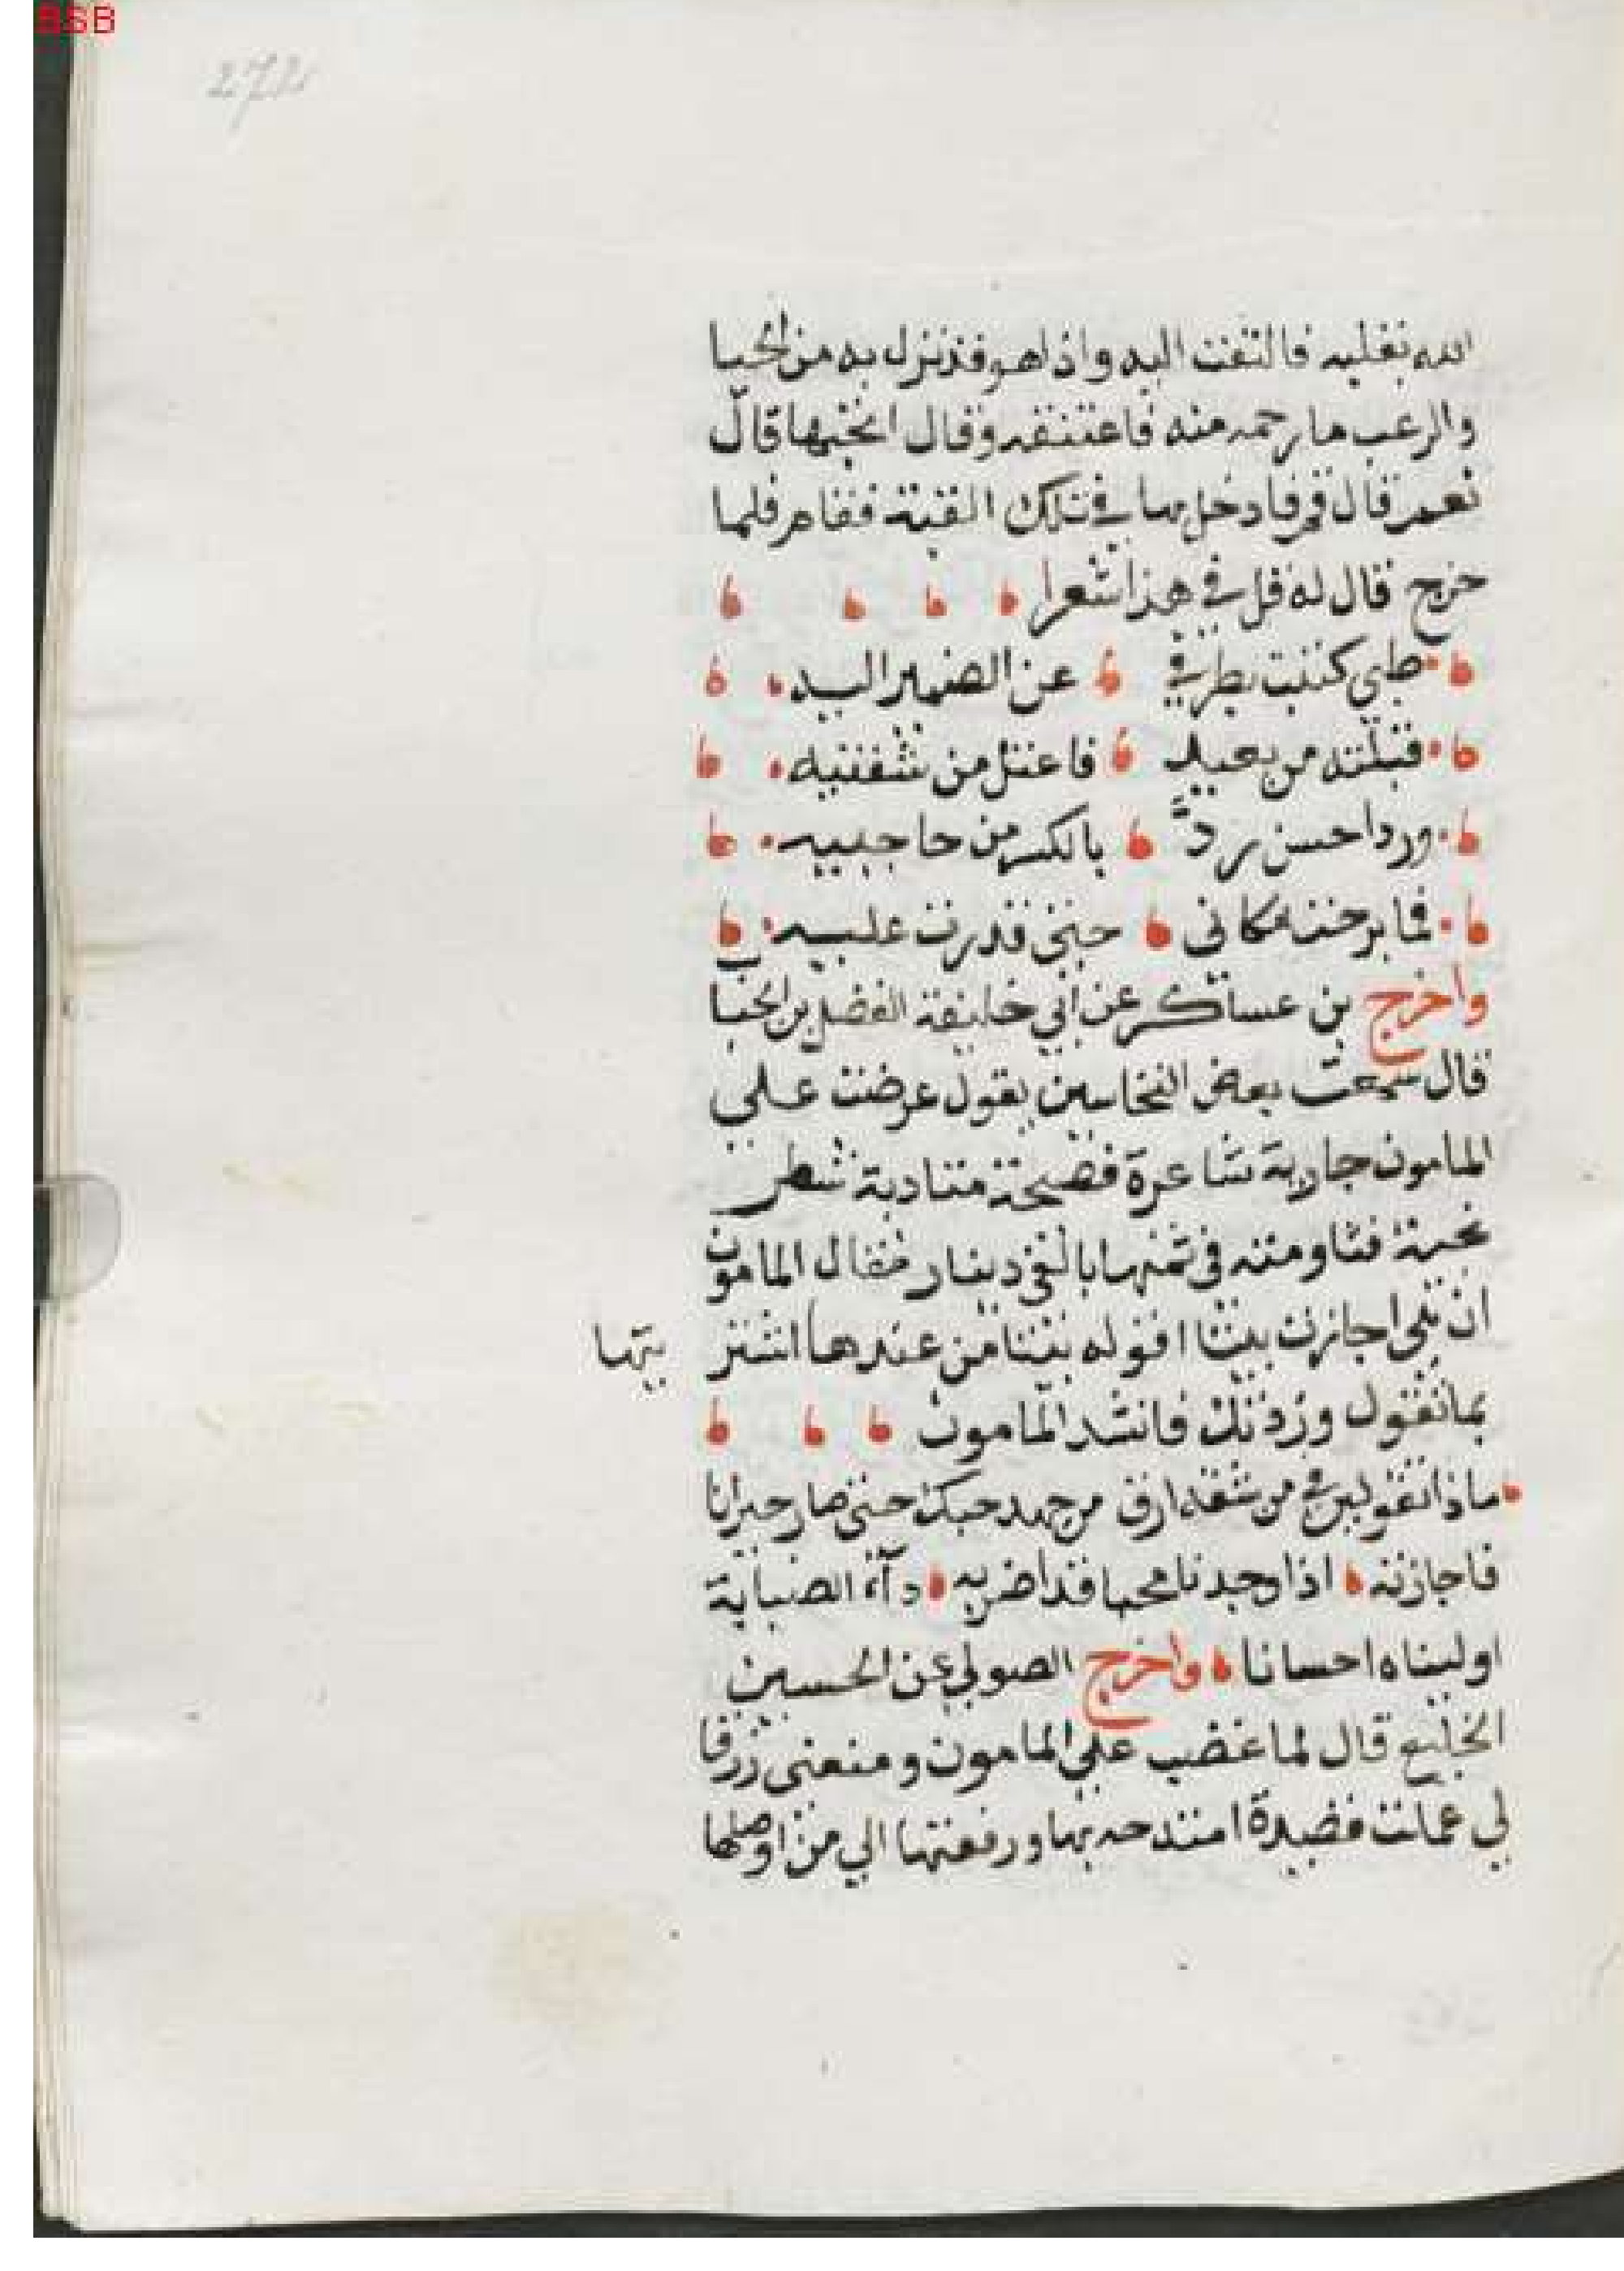 BSB
272
الله بقلبه فالتفت اليه واذا هو قد نزل به من الحيا
والرعب ما رحمه منه فاعتنقه وقال اتحبها قال
نعم قال قم فادخل بها في تلك القبة فقام فلما
خرج قال له قل في هذا شعرا
ظبي كتبت بطرفي عن الضمير اليه
قبلته من بعيد فاعتل من شفتيه
ورد احسن رد بالكسر من حاجبيه
فما برحت مكاني حتى قدرت عليه
واخرج بن عساكر عن ابي خليفة الفضل بن الحبا
قال سمعت بعض النخاسين يقول عرضت على
المامون جارية شاعرة فصيحة متادبة شطر
نجية فساومته في ثمنها بالفي دينار فقال المامون
ان هي اجازت بيتا اقوله ببيت من عندها اشتر يتها
بما تقول وزدتك فانشد المامون
ماذا تقولين في من شفه ارق من جهد حبك حتى صار حيرانا
فاجازته اذا وجدنا محبا قد اضر به دآء الصبابة
اوليناه احسانا واخرج الصولي عن الحسين
الخليع قال لما غضب علي المامون ومنعني رزقا
لي عملت قصيدة امتدحه بها ورفعتها الي من اوصلها